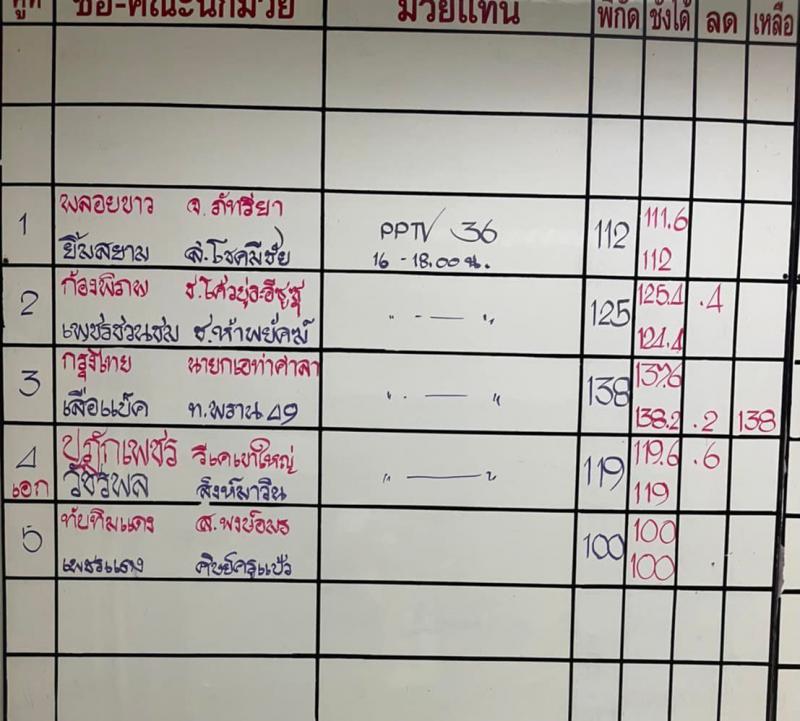 คู่ที่ ชื่อ-คณะนักมวย มวยแทน พิกัด ชั่งได้ ลด เหลือ
1 พลอยขาว จ.ภัทรียา PPTV 36 112 111.6
ยิ้มสยาม ส.โชคมีชัย 16 - 18.00 น. 112
2 ก้องพิภพ 125 125.4 .4
เพชรชวนชม ช.ห้าพยัคฆ์ " - — " 124.4
3 กรุงไทย นายกเอท่าศาลา 138 137.6
เสือแบ็ค ท.พราน 49 " . — " 138.2 .2 138
4 วีเคเขาใหญ่ 119 119.6 .6
เอก วัชรพล สิงห์มาวิน " — " 119
5 ทับทิมแดง ส.พงษ์อมร 100 100
เพชรแดง ศิษย์ครูแป๋ว 100